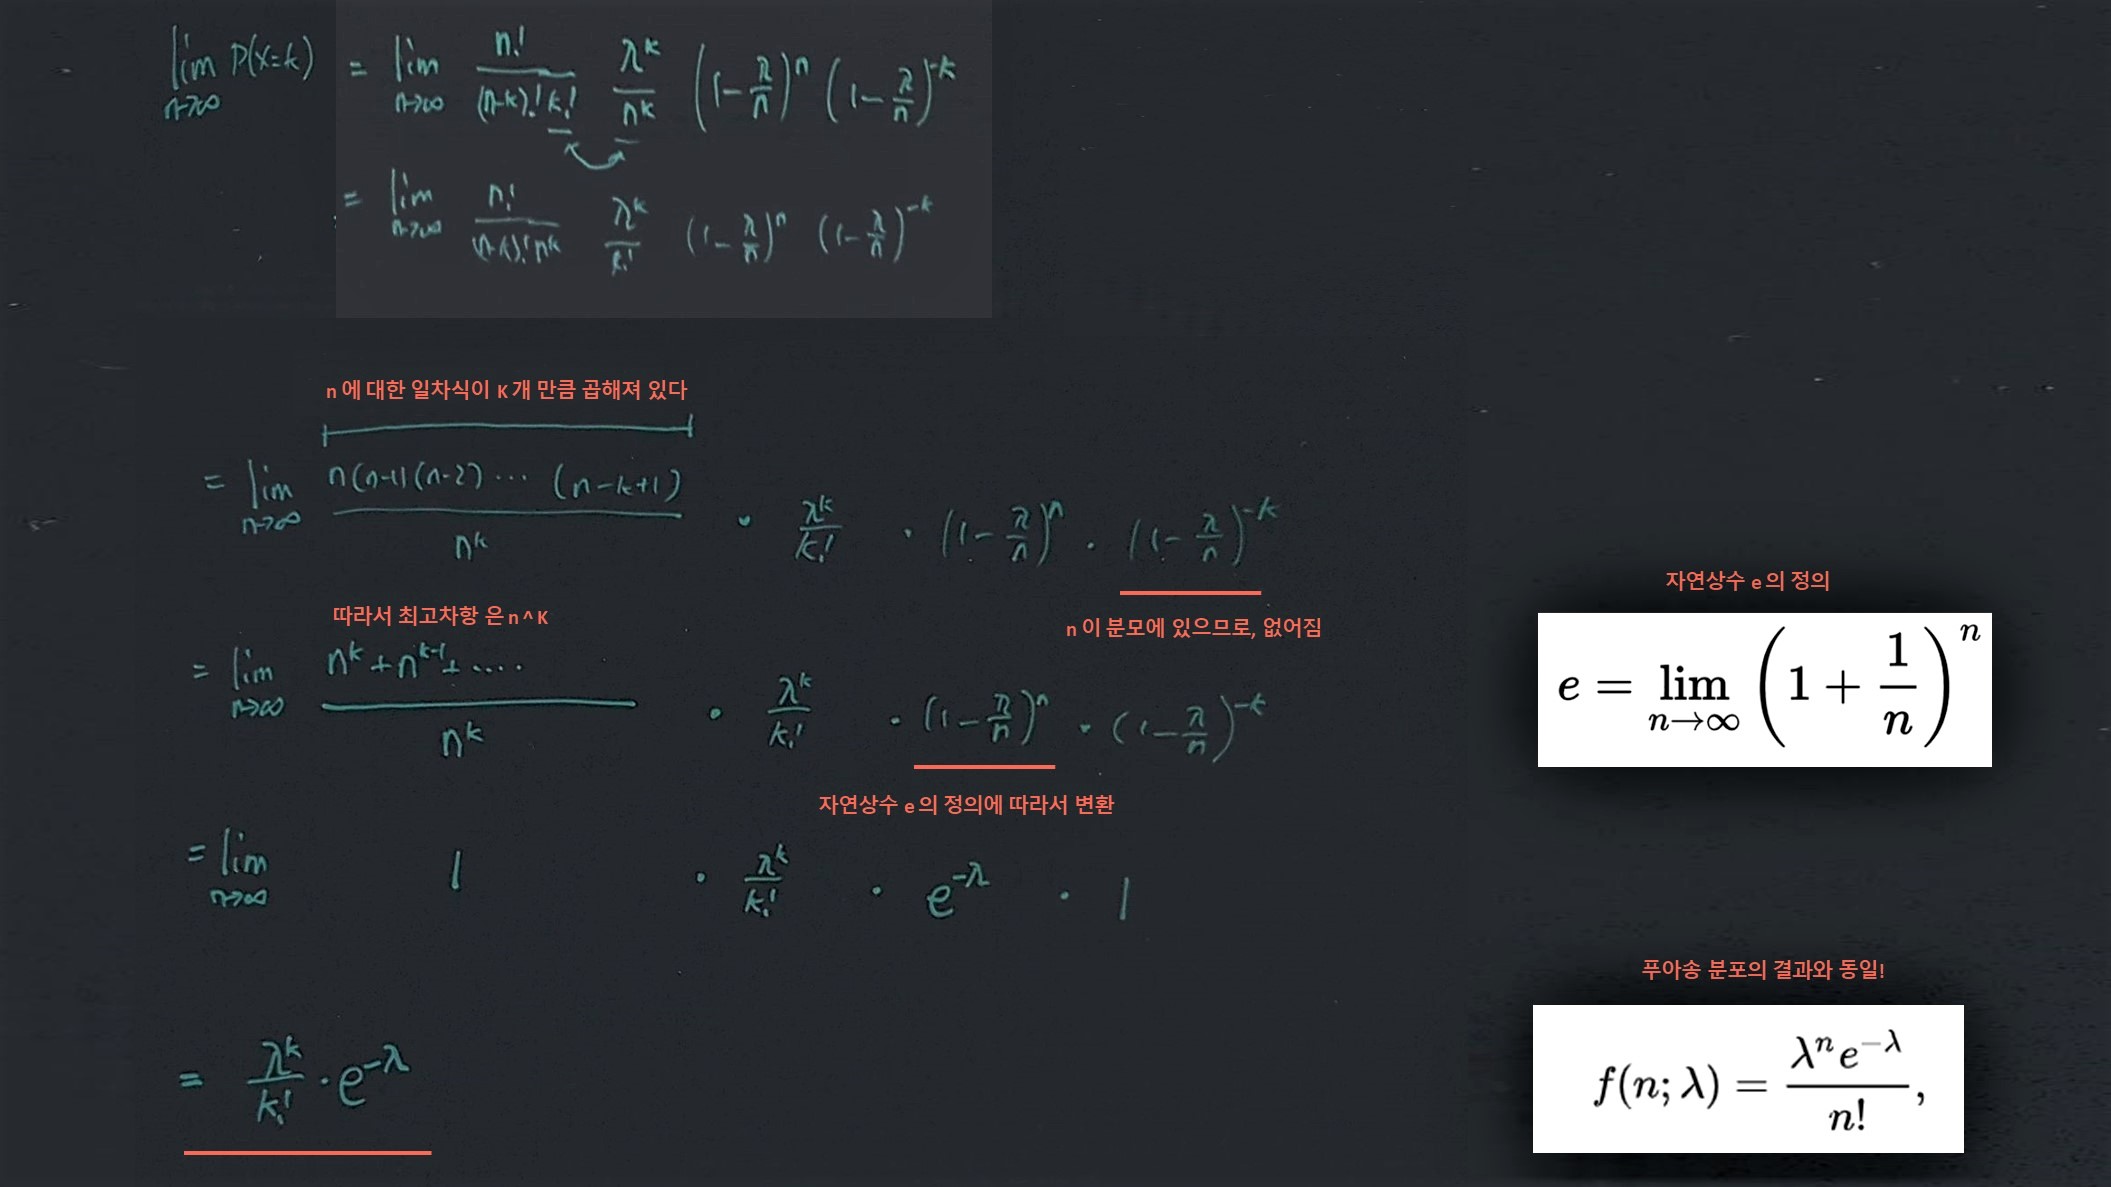 lim n→∞ P(X=k) = lim n→∞ n!/((n-k)! k!) λ^k/n^k (1-λ/n)^n (1-λ/n)^-k
= lim n→∞ n!/((n-k)! n^k) λ^k/k! (1-λ/n)^n (1-λ/n)^-k
n 에 대한 일차식이 K 개 만큼 곱해져 있다
= lim n→∞ n(n-1)(n-2)⋯(n-k+1)/n^k · λ^k/k! · (1-λ/n)^n · (1-λ/n)^-k
n 이 분모에 있으므로, 없어짐
따라서 최고차항 은 n ^ K
= lim n→∞ (n^k + n^k-1 + ....)/n^k · λ^k/k! · (1-λ/n)^n · (1-λ/n)^-k
자연상수 e 의 정의에 따라서 변환
= lim n→∞ 1 · λ^k/k! · e^-λ · 1
= λ^k/k! · e^-λ
자연상수 e 의 정의
e = lim n→∞ (1 + 1/n)^n
푸아송 분포의 결과와 동일!
f(n; λ) = λ^n e^-λ / n!,